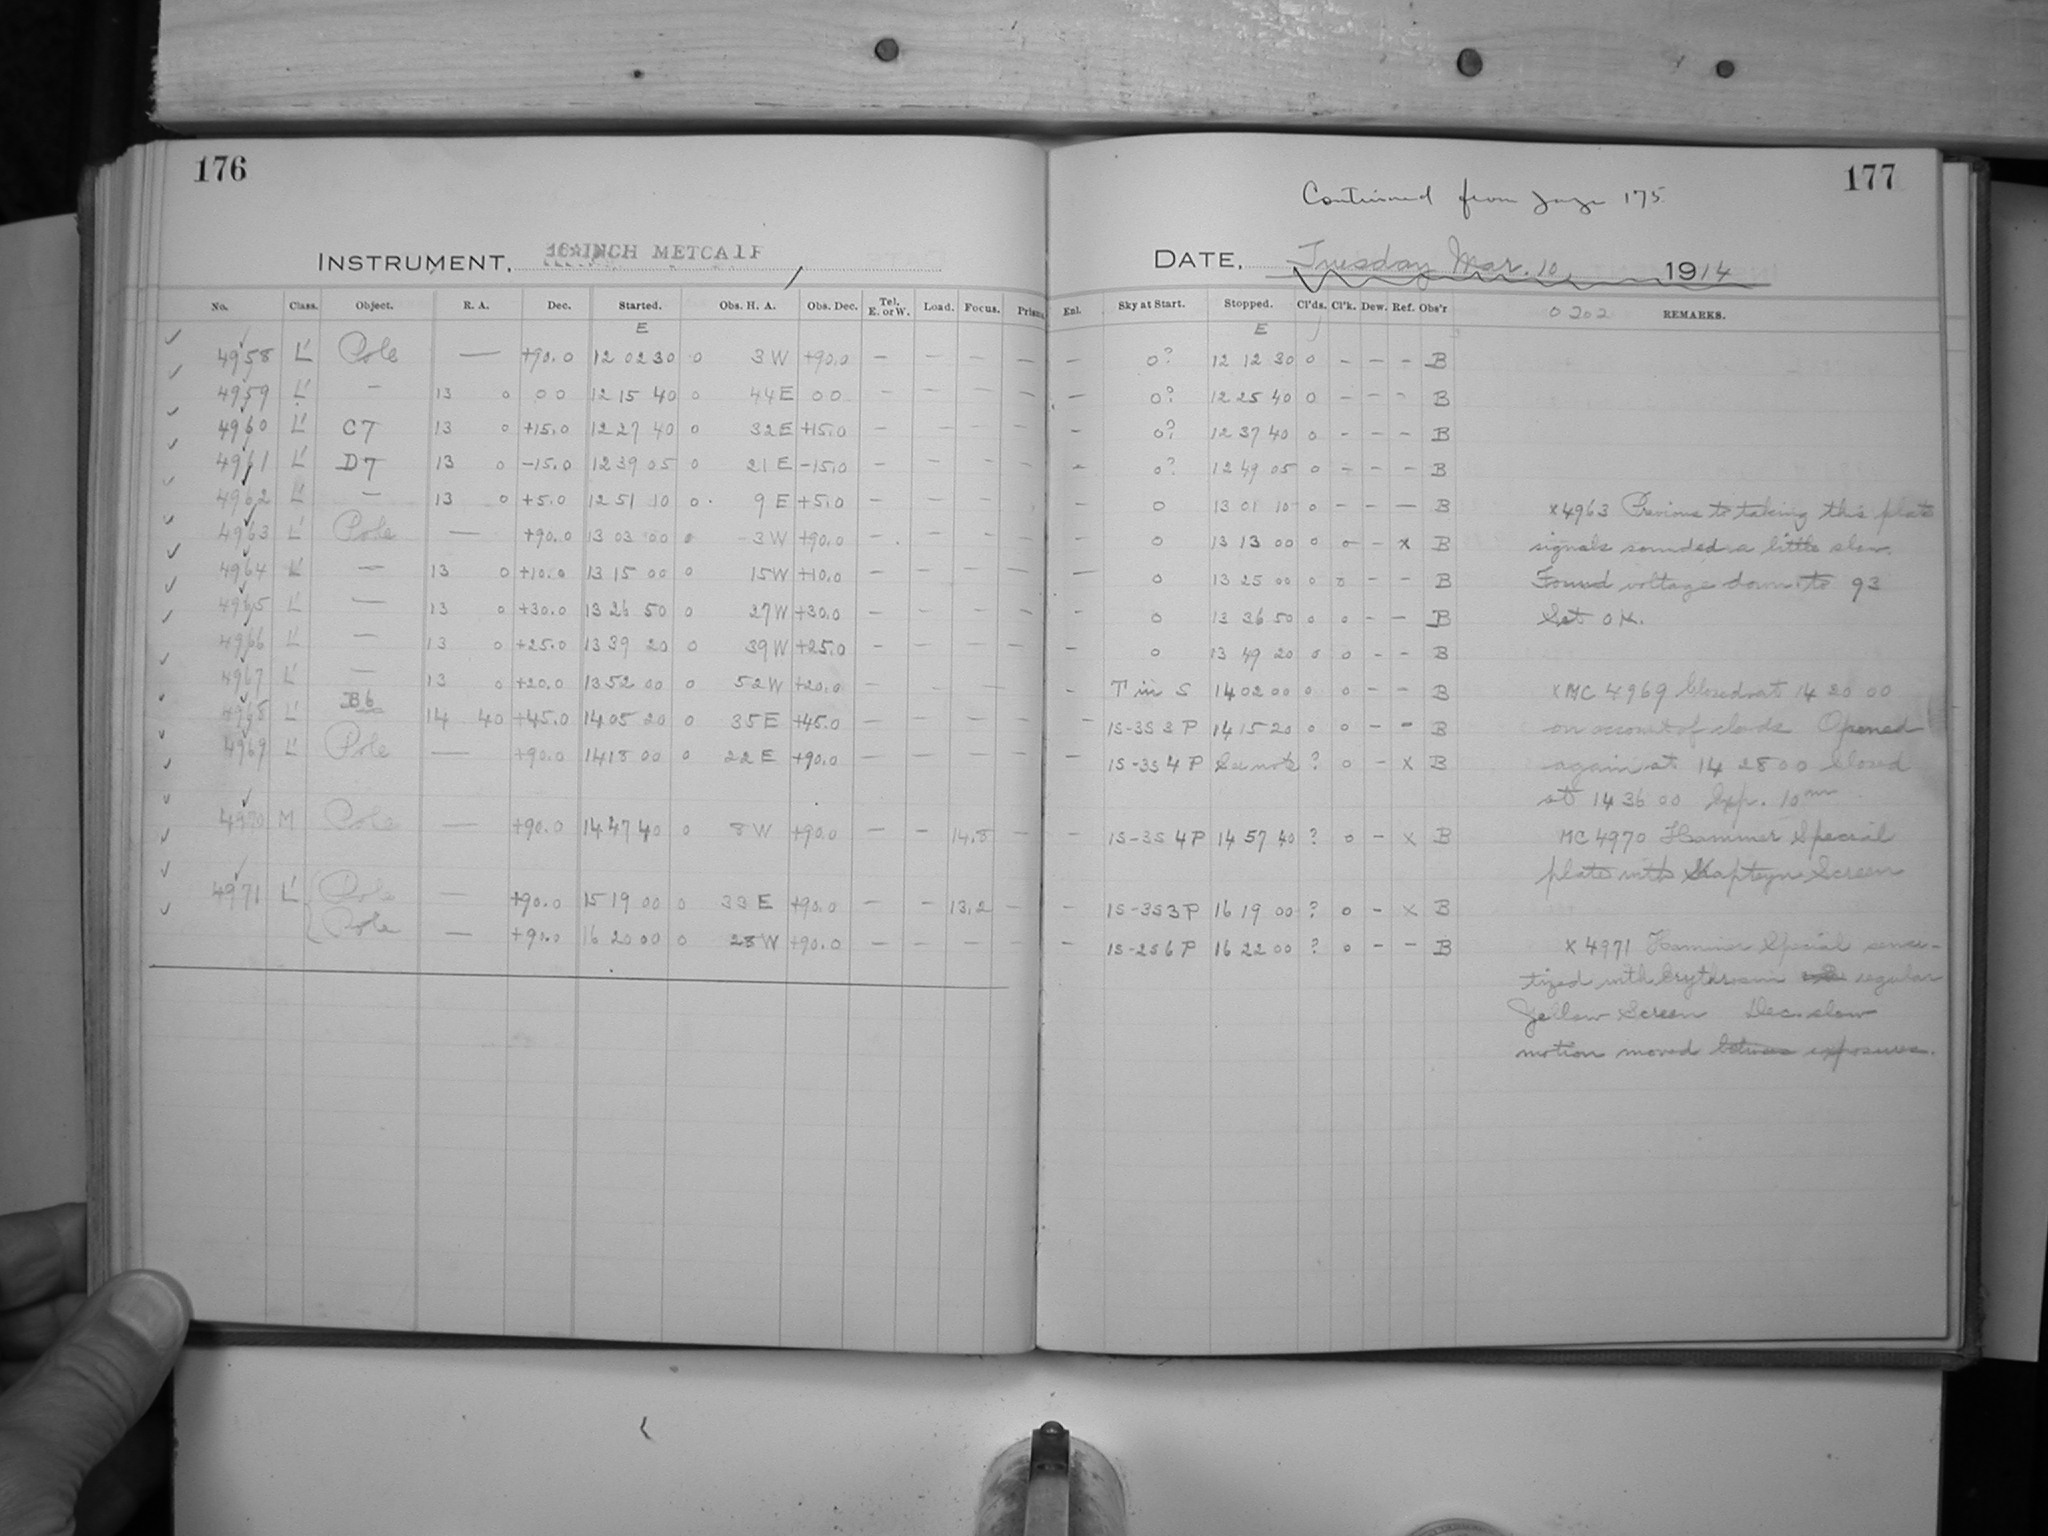 176
INSTRUMENT, 16-INCH METCALF
No. Class. Object. R. A. Dec. Started. Obs. H. A. Obs. Dec. Tel. E. or W. Load. Focus. Prisms.
E
4958 L' Pole — +90.0 12 02 30 0 3 W +90.0 — — — —
4959 L' — 13 0 00 12 15 40 0 44 E 00 — — — —
4960 L' C7 13 0 +15.0 12 27 40 0 32 E +15.0 — — — —
4961 L' D7 13 0 -15.0 12 39 05 0 21 E -15.0 — — — —
4962 L' — 13 0 +5.0 12 51 10 0 9 E +5.0 — — — —
4963 L' Pole — +90.0 13 03 00 0 3 W +90.0 — — — —
4964 L' — 13 0 +10.0 13 15 00 0 15 W +10.0 — — — —
4965 L' — 13 0 +30.0 13 26 50 0 27 W +30.0 — — — —
4966 L' — 13 0 +25.0 13 39 20 0 39 W +25.0 — — — —
4967 L' — 13 0 +20.0 13 52 00 0 52 W +20.0 — — — —
4968 L' B6 14 40 +45.0 14 05 20 0 35 E +45.0 — — — —
4969 L' Pole — +90.0 14 18 00 0 22 E +90.0 — — — —
4970 M Pole — +90.0 14 47 40 0 8 W +90.0 — — 14.8 —
4971 L' Pole — +90.0 15 19 00 0 33 E +90.0 — — 13.2 —
Pole — +90.0 16 20 00 0 28 W +90.0 — — — —
177
Continued from page 175
DATE, Tuesday Mar. 10, 1914
Enl. Sky at Start. Stopped. Cl'ds. Cl'k. Dew. Ref. Obs'r 0202 REMARKS.
E
— 0? 12 12 30 0 — — — B
— 0? 12 25 40 0 — — — B
— 0? 12 37 40 0 — — — B
— 0? 12 49 05 0 — — — B
— 0 13 01 10 0 — — — B
— 0 13 13 00 0 0 — x B
— 0 13 25 00 0 0 — — B
— 0 13 36 50 0 0 — — B
— 0 13 49 20 0 0 — — B
— T in S 14 02 00 0 0 — — B
— 1S-3S 3 P 14 15 20 0 0 — — B
— 1S-3S 4 P See note ? 0 — x B
— 1S-3S 4 P 14 57 40 ? 0 — x B
— 1S-3S 3 P 16 19 00 ? 0 — x B
— 1S-2S 6 P 16 22 00 ? 0 — — B
x4963 Previous to taking this plate
signals sounded a little slow.
Found voltage down to 93
Set OK.
xMC 4969 Closed at 14 20 00
on account of clouds Opened
again at 14 28 00 Closed
at 14 36 00 Exp. 10m
MC 4970 Hammer Special
plate with Kapteyn Screen
x 4971 Hammer Special sensi-
tized with Erythrosin regular
Yellow Screen Dec. slow
motion moved between exposures.